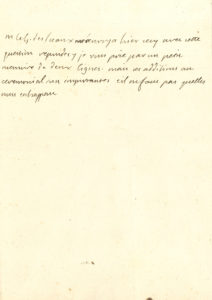 m le g. des sceaux m'envoya hier cecy avec cette
question repondez y je vous prie par un petit
memoire de deux lignes mais ces additions au
ceremonial sont importantes il ne faut pas quelles
nous echappent